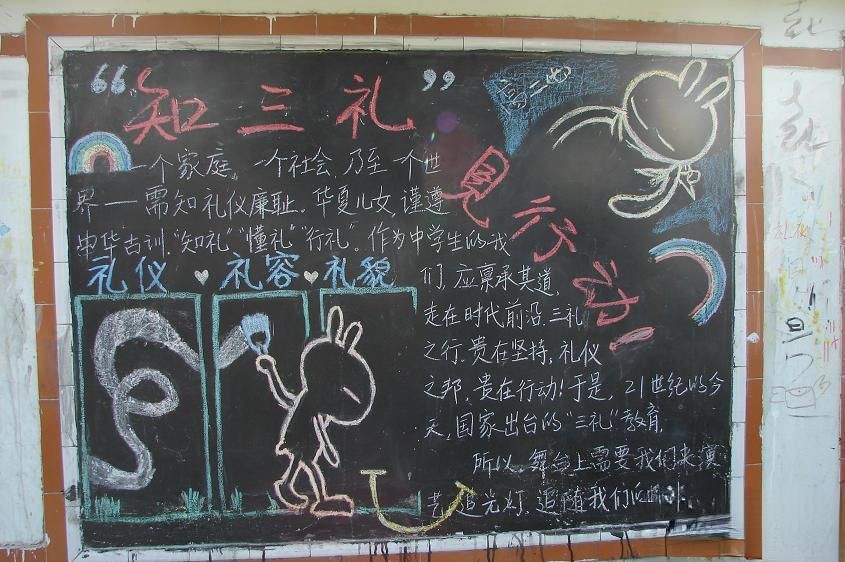 “知三礼”
见行动!
高二四
一个家庭,一个社会,乃至一个世
界——需知礼仪廉耻.华夏儿女,谨遵
中华古训.“知礼”“懂礼”“行礼”.作为中学生的我
们,应禀承其道,
走在时代前沿.三礼
之行.贵在坚持,礼仪
之邦,贵在行动!于是,21世纪的今
天,国家出台的“三礼”教育,
所以,舞台上需要我们来演
艺,追光灯,追随我们
礼仪♥礼容♥礼貌